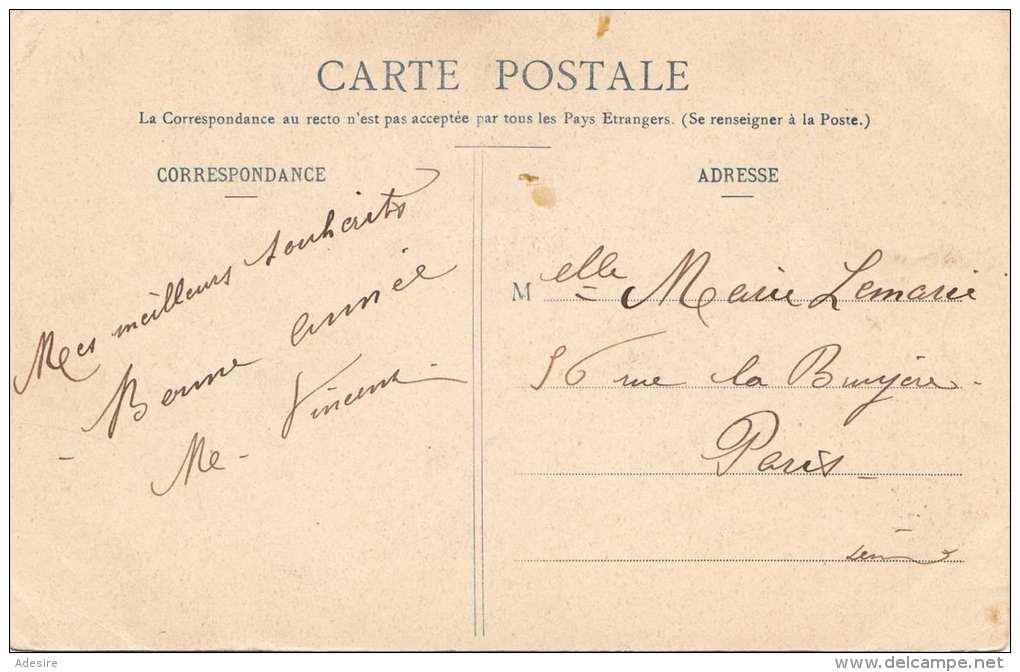 CARTE POSTALE
La Correspondance au recto n'est pas acceptée par tous les Pays Etrangers. (Se renseigner à la Poste.)
CORRESPONDANCE
Mes meilleurs souhaits
Bonne année
Me - Vincent
ADRESSE
Melle Marie Lemarié
56 rue la Bruyère
Paris
Adesire
delcampe.net